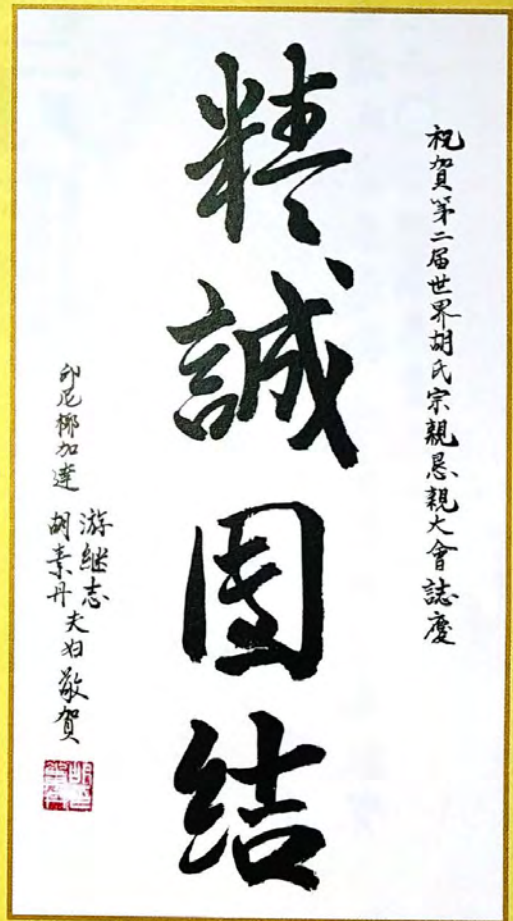 祝賀第二届世界胡氏宗親恳親大會誌慶
精誠團结
印尼椰加達
游継志
胡素丹
夫妇敬賀